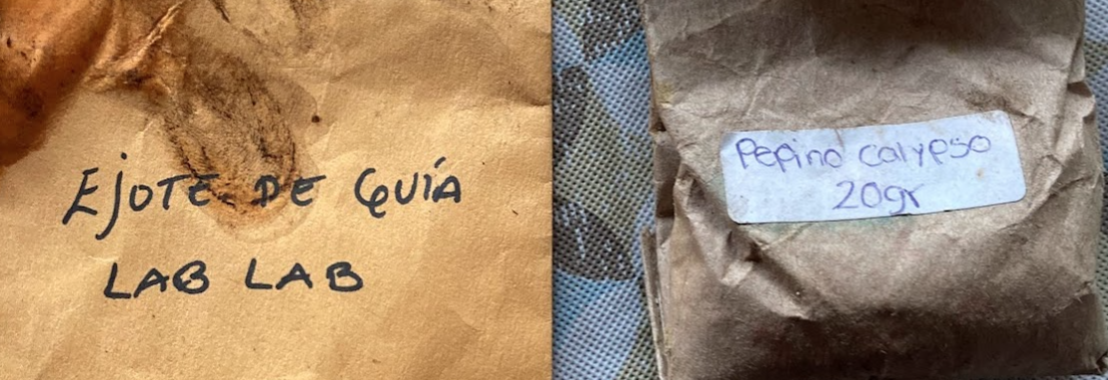 EJOTE DE GUÍA
LAB LAB
Pepino calypso
20gr